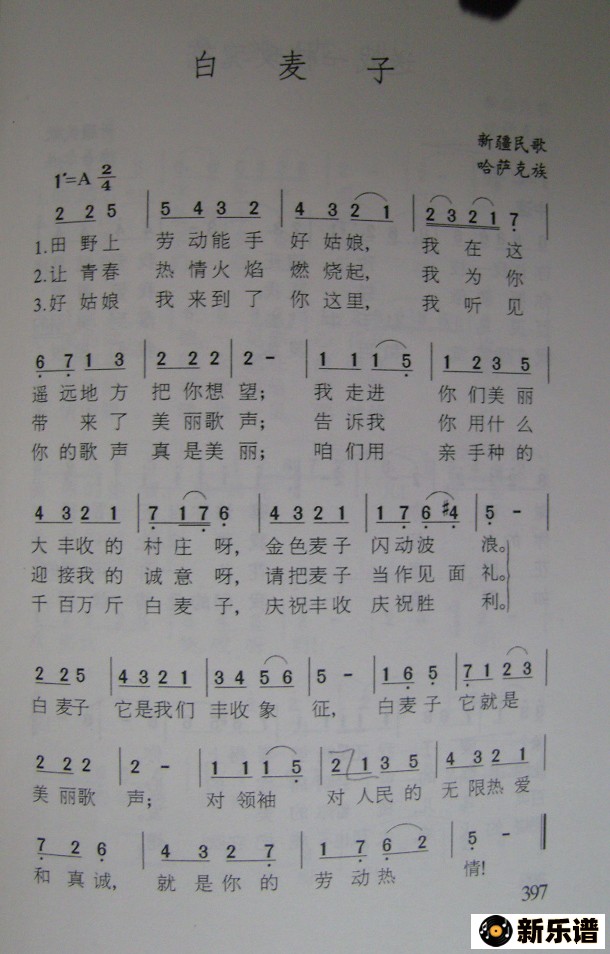 白麦子
新疆民歌
哈萨克族
1=A 2/4
2 2 5 | 5 4 3 2 | 4 3 2 1 | 2 3 2 1 7 |
1.田野上 劳动能手 好姑娘, 我在这
2.让青春 热情火焰 燃烧起, 我为你
3.好姑娘 我来到了 你这里, 我听见
6 7 1 3 | 2 2 2 | 2 - | 1 1 1 5 | 1 2 3 5
遥远地方 把你想望; 我走进 你们美丽
带来了 美丽歌声; 告诉我 你用什么
你的歌声 真是美丽; 咱们用 亲手种的
4 3 2 1 | 7 1 7 6 | 4 3 2 1 | 1 7 6 #4 | 5 -
大丰收的 村庄呀, 金色麦子 闪动波 浪。
迎接我的 诚意呀, 请把麦子 当作见面 礼。
千百万斤 白麦子, 庆祝丰收 庆祝胜 利。
2 2 5 | 4 3 2 1 | 3 4 5 6 | 5 - | 1 6 5 | 7 1 2 3
白麦子 它是我们 丰收象 征, 白麦子 它就是
2 2 2 | 2 - | 1 1 1 5 | 2 1 3 5 | 4 3 2 1
美丽歌 声; 对领袖 对人民的 无限热爱
7 2 6 | 4 3 2 7 | 1 7 6 2 | 5 - ‖
和真诚, 就是你的 劳动热 情!
397
新乐谱